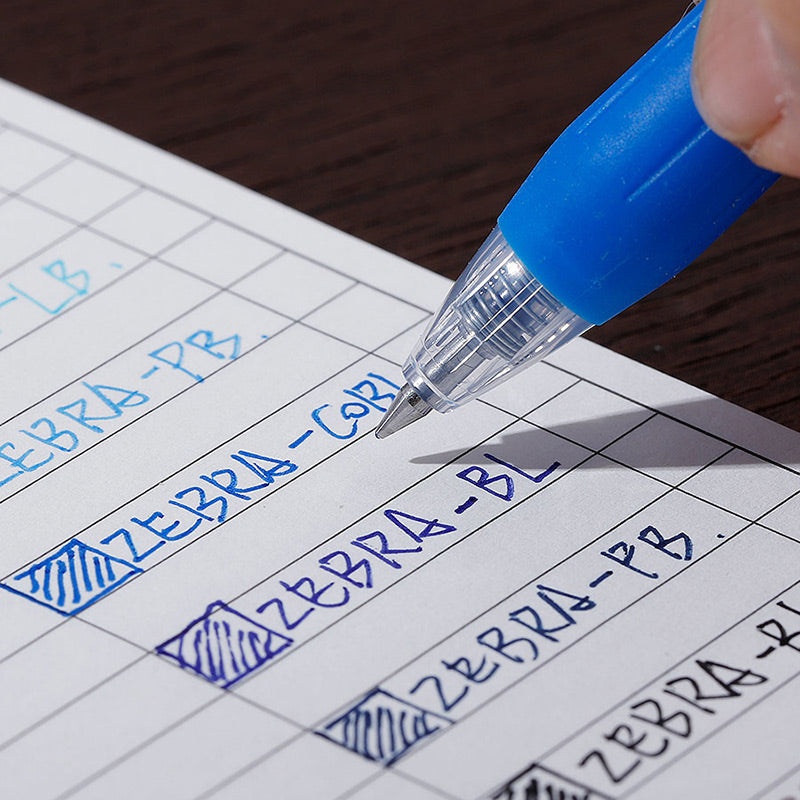 -LB.
ZEBRA-PB.
ZEBRA-COBL
ZEBRA-BL
ZEBRA-PB.
ZEBRA-BL